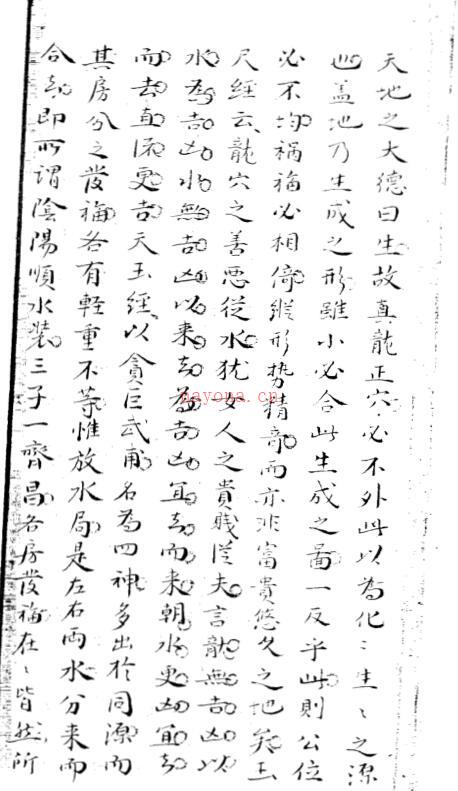 天地之大德曰生故真龍正穴必不外此以為化〻生〻之源
也蓋地乃生成之形雖小必合此生成之圖一反乎此則公位
必不均禍福必相倚縱形势精奇而亦非富貴悠久之地矣玉
尺經云龍穴之善惡從水犹女人之貴賎從夫言龍無吉凶以
水為吉凶水無吉凶以来去為吉凶宜去而来朝水更凶宜去
而去直流更吉天玉經以貪巨武甫名為四神多出於同源而
其房分之發福各有輕重不等惟放水局是左右両水分来而
合去即所謂陰陽順水裝三子一齊昌各房發福在〻皆然所
nayona.cn